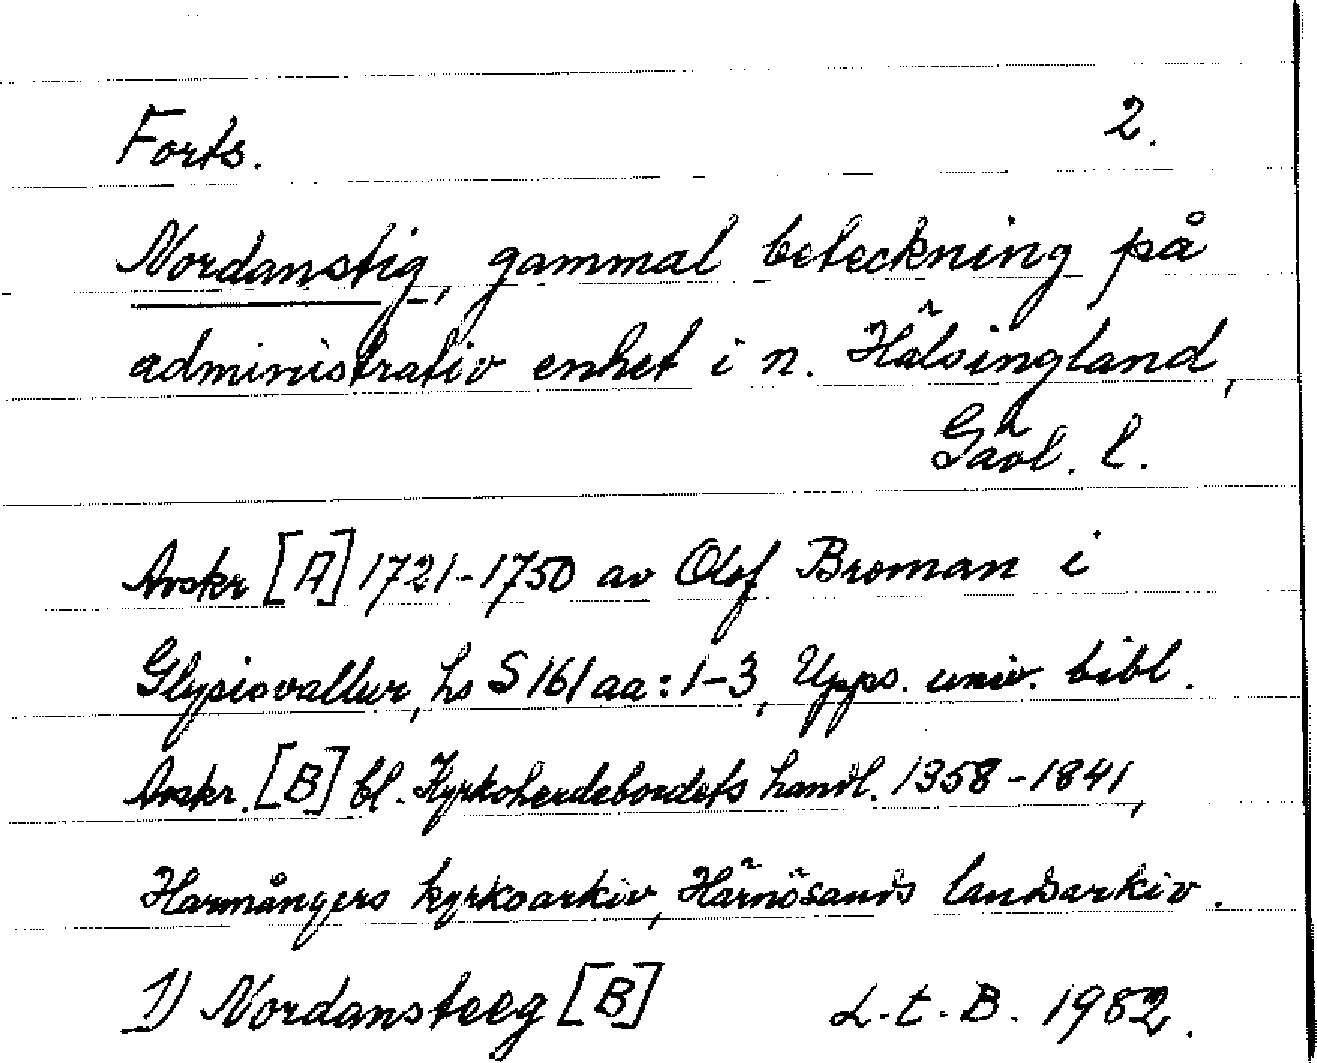 Forts. 2.
Nordanstig, gammal beteckning på
administrativ enhet i n. Hälsingland,
Gävl. l.
Avskr [A] 1721-1750 av Olof Broman i
Glysisvallur, hs S 161 aa: 1-3, Upps. univ. bibl.
Avskr. [B] bl. Kyrkoherdebordets handl. 1358-1841,
Harmångers kyrkoarkiv, Härnösands landsarkiv.
1) Nordansteeg [B] L.t.B. 1982.